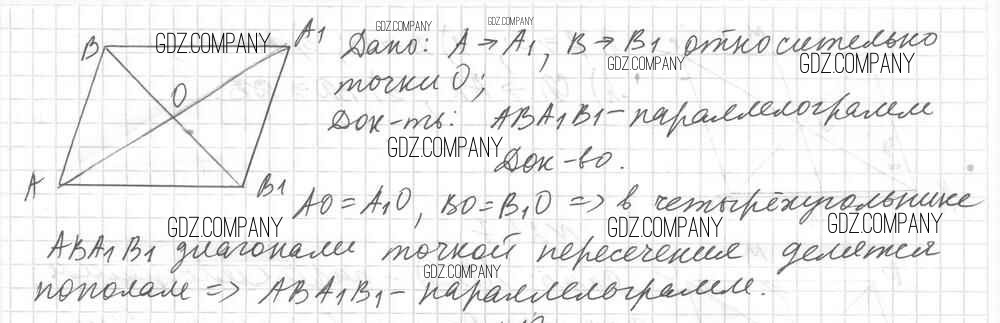 B A1 Дано: A → A1, B → B1 относительно
O точки O;
Док-ть: ABA1B1 - параллелограмм
Док-во.
A B1 AO = A1O, BO = B1O => в четырёхугольнике
ABA1B1 диагонали точкой пересечения делятся
пополам => ABA1B1 - параллелограмм.
GDZ.COMPANY
GDZ.COMPANY
GDZ.COMPANY
GDZ.COMPANY
GDZ.COMPANY
GDZ.COMPANY
GDZ.COMPANY
GDZ.COMPANY
GDZ.COMPANY
GDZ.COMPANY